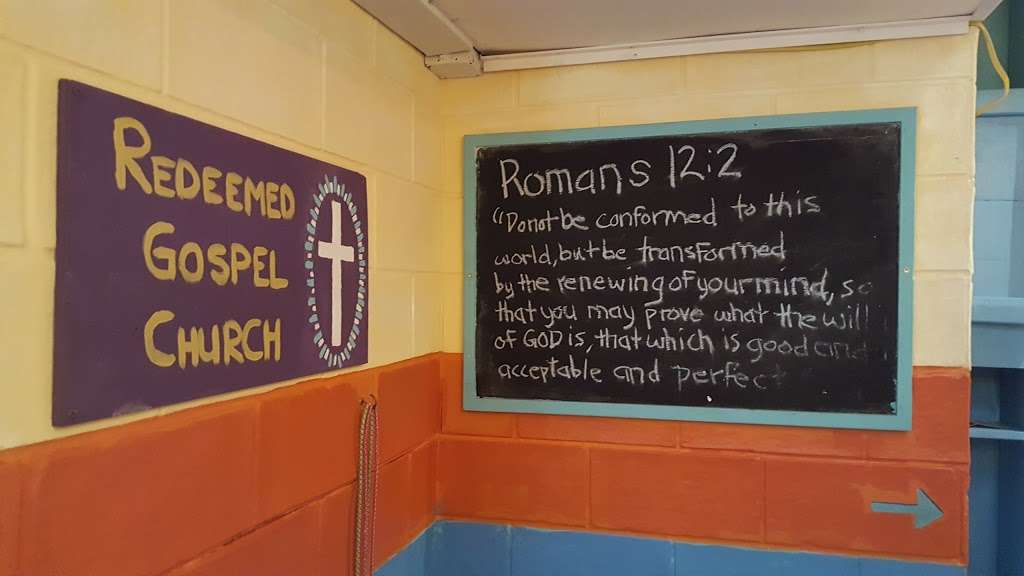 REDEEMED
GOSPEL
CHURCH
Romans 12:2
"Do not be conformed to this
world, but be transformed
by the renewing of your mind, so
that you may prove what the will
of GOD is, that which is good and
acceptable and perfect